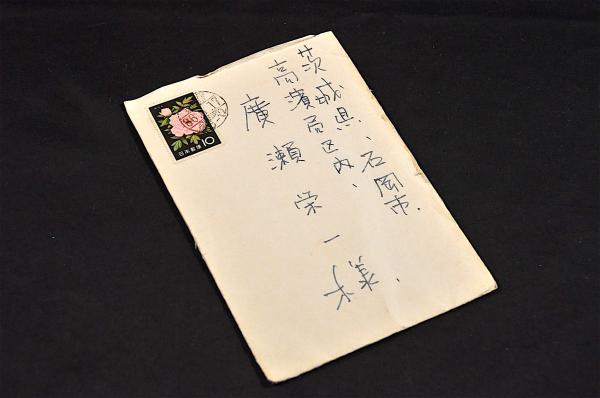 茨城県、石岡市.
高濱局区内、
廣瀬栄一様.
日本郵便 10